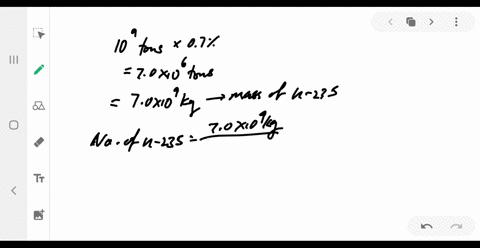 10⁹ tons × 0.7%
= 7.0×10⁶ tons
= 7.0×10⁹ kg → mass of U-235
No. of U-235 = 7.0×10⁹ kg
Tт